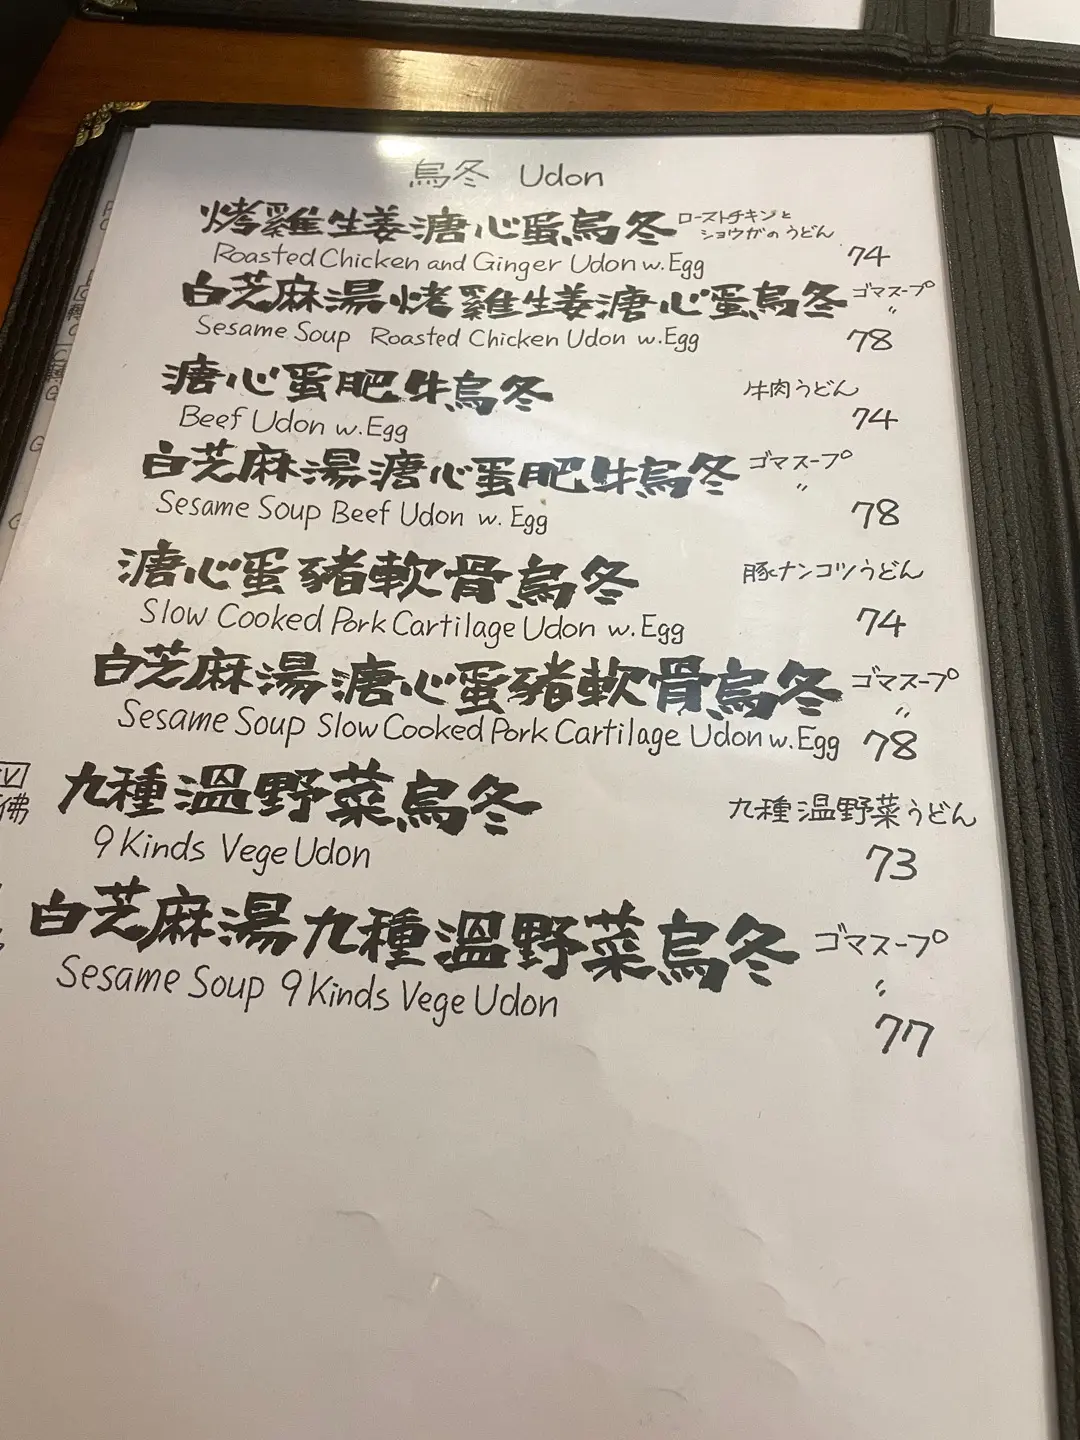 烏冬 Udon
烤雞生姜溏心蛋烏冬 ローストチキンと
ショウガの うどん
Roasted Chicken and Ginger Udon w. Egg 74
白芝麻湯烤雞生姜溏心蛋烏冬 ゴマスープ
〃
Sesame Soup Roasted Chicken Udon w. Egg 78
溏心蛋肥牛烏冬 牛肉うどん
Beef Udon w. Egg 74
白芝麻湯溏心蛋肥牛烏冬 ゴマスープ
〃
Sesame Soup Beef Udon w. Egg 78
溏心蛋豬軟骨烏冬 豚ナンコツうどん
Slow Cooked Pork Cartilage Udon w. Egg 74
白芝麻湯溏心蛋豬軟骨烏冬 ゴマスープ
〃
Sesame Soup Slow Cooked Pork Cartilage Udon w. Egg 78
九種溫野菜烏冬 九種溫野菜うどん
9 Kinds Vege Udon 73
白芝麻湯九種溫野菜烏冬 ゴマスープ
〃
Sesame Soup 9 Kinds Vege Udon 77